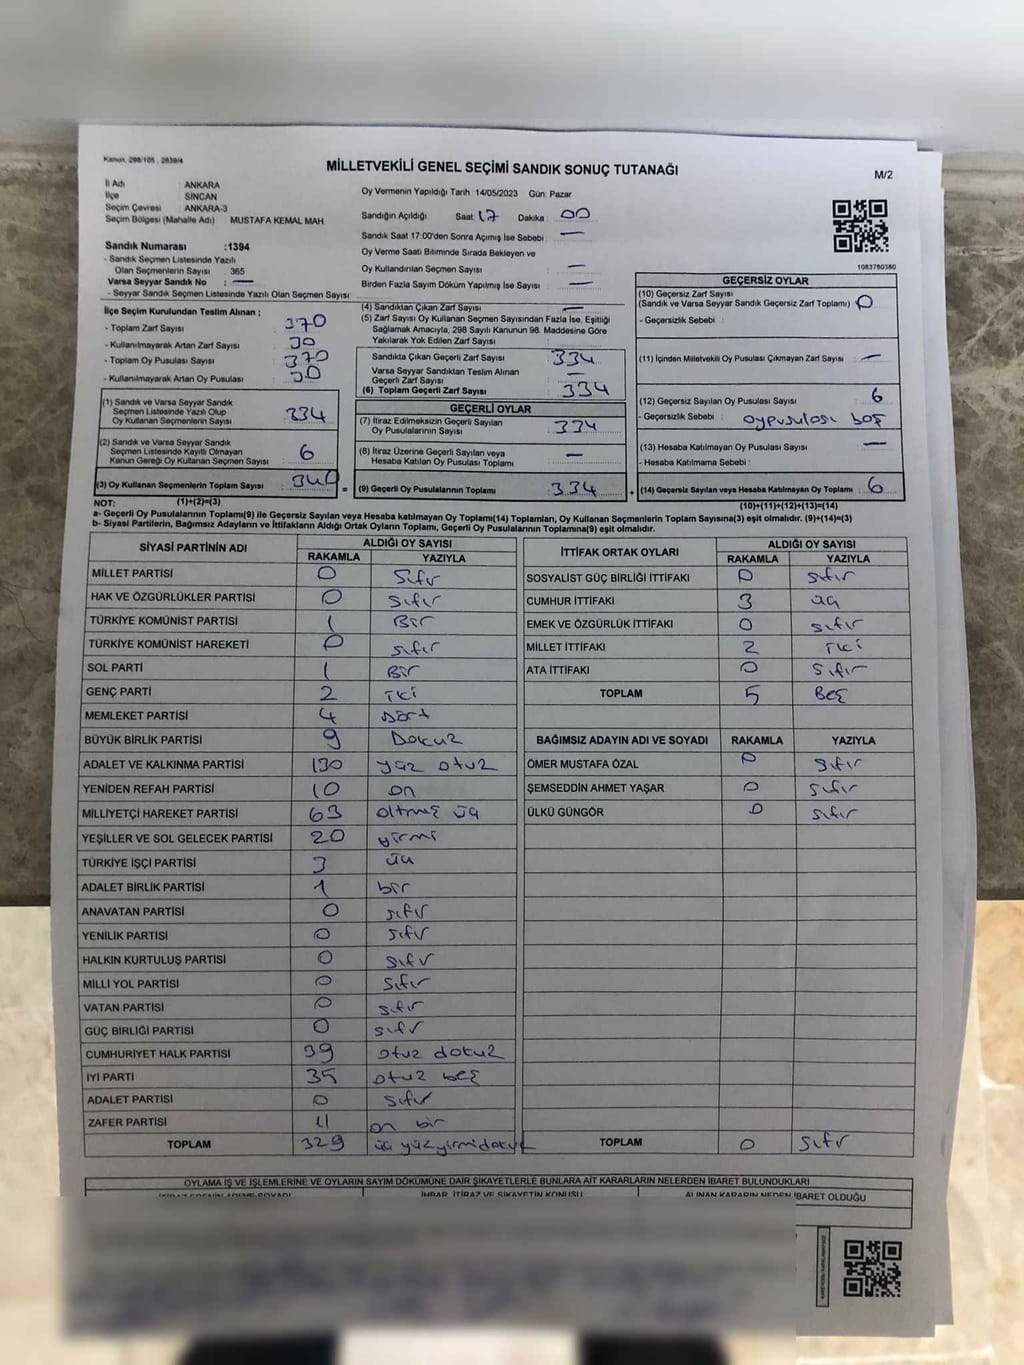 Kanun, 298/105 , 2839/4
MİLLETVEKİLİ GENEL SEÇİMİ SANDIK SONUÇ TUTANAĞI
M/2
İl Adı ANKARA
İlçe SİNCAN
Seçim Çevresi ANKARA-3
Seçim Bölgesi (Mahalle Adı) MUSTAFA KEMAL MAH.
Sandık Numarası :1394
- Sandık Seçmen Listesinde Yazılı
Olan Seçmenlerin Sayısı : 365
Varsa Seyyar Sandık No : —
- Seyyar Sandık Seçmen Listesinde Yazılı Olan Seçmen Sayısı
İlçe Seçim Kurulundan Teslim Alınan ;
- Toplam Zarf Sayısı : 370
- Kullanılmayarak Artan Zarf Sayısı : 30
- Toplam Oy Pusulası Sayısı : 370
- Kullanılmayarak Artan Oy Pusulası : 30
(1) Sandık ve Varsa Seyyar Sandık
Seçmen Listesinde Yazılı Olup
Oy Kullanan Seçmenlerin Sayısı : 334
(2) Sandık ve Varsa Seyyar Sandık
Seçmen Listesinde Kayıtlı Olmayan
Kanun Gereği Oy Kullanan Seçmen Sayısı : 6
(3) Oy Kullanan Seçmenlerin Toplam Sayısı : 340
Oy Vermenin Yapıldığı Tarih : 14/05/2023 Gün: Pazar
Sandığın Açıldığı Saat: 17 Dakika : 00
Sandık Saat 17:00'den Sonra Açımış İse Sebebi : —
Oy Verme Saati Bitiminde Sırada Bekleyen ve
Oy Kullandırılan Seçmen Sayısı : —
Birden Fazla Sayım Döküm Yapılmış İse Sayısı : —
(4) Sandıktan Çıkan Zarf Sayısı : —
(5) Zarf Sayısı Oy Kullanan Seçmen Sayısından Fazla İse, Eşitliği
Sağlamak Amacıyla, 298 Sayılı Kanunun 98. Maddesine Göre
Yakılarak Yok Edilen Zarf Sayısı :
Sandıkta Çıkan Geçerli Zarf Sayısı : 334
Varsa Seyyar Sandıktan Teslim Alınan
Geçerli Zarf Sayısı : —
(6) Toplam Geçerli Zarf Sayısı : 334
GEÇERLİ OYLAR
(7) İtiraz Edilmeksizin Geçerli Sayılan
Oy Pusulalarının Sayısı : 334
(8) İtiraz Üzerine Geçerli Sayılan veya
Hesaba Katılan Oy Pusulası Toplamı : —
= (9) Geçerli Oy Pusulalarının Toplamı : 334
1083780380
GEÇERSİZ OYLAR
(10) Geçersiz Zarf Sayısı
(Sandık ve Varsa Seyyar Sandık Geçersiz Zarf Toplamı) : 0
- Geçersizlik Sebebi :
(11) İçinden Milletvekili Oy Pusulası Çıkmayan Zarf Sayısı : —
(12) Geçersiz Sayılan Oy Pusulası Sayısı : 6
- Geçersizlik Sebebi : oypusulası boş
(13) Hesaba Katılmayan Oy Pusulası Sayısı : —
- Hesaba Katılmama Sebebi :
+ (14) Geçersiz Sayılan veya Hesaba Katılmayan Oy Toplamı : 6
NOT: (1)+(2)=(3) (10)+(11)+(12)+(13)=(14)
a- Geçerli Oy Pusulalarının Toplamı(9) ile Geçersiz Sayılan veya Hesaba katılmayan Oy Toplamı(14) Toplamları, Oy Kullanan Seçmenlerin Toplam Sayısına(3) eşit olmalıdır. (9)+(14)=(3)
b- Siyasi Partilerin, Bağımsız Adayların ve İttifakların Aldığı Ortak Oyların Toplamı, Geçerli Oy Pusulalarının Toplamına(9) eşit olmalıdır.
SİYASİ PARTİNİN ADI ALDIĞI OY SAYISI
RAKAMLA YAZIYLA
MİLLET PARTİSİ 0 sıfır
HAK VE ÖZGÜRLÜKLER PARTİSİ 0 sıfır
TÜRKİYE KOMÜNİST PARTİSİ 1 Bir
TÜRKİYE KOMÜNİST HAREKETİ 0 sıfır
SOL PARTİ 1 Bir
GENÇ PARTİ 2 iki
MEMLEKET PARTİSİ 4 Dört
BÜYÜK BİRLİK PARTİSİ 9 Dokuz
ADALET VE KALKINMA PARTİSİ 130 yüz otuz
YENİDEN REFAH PARTİSİ 10 on
MİLLİYETÇİ HAREKET PARTİSİ 63 altmış üç
YEŞİLLER VE SOL GELECEK PARTİSİ 20 yirmi
TÜRKİYE İŞÇİ PARTİSİ 3 üç
ADALET BİRLİK PARTİSİ 1 bir
ANAVATAN PARTİSİ 0 sıfır
YENİLİK PARTİSİ 0 sıfır
HALKIN KURTULUŞ PARTİSİ 0 sıfır
MİLLİ YOL PARTİSİ 0 sıfır
VATAN PARTİSİ 0 sıfır
GÜÇ BİRLİĞİ PARTİSİ 0 sıfır
CUMHURİYET HALK PARTİSİ 39 otuz dokuz
İYİ PARTİ 35 otuz beş
ADALET PARTİSİ 0 sıfır
ZAFER PARTİSİ 11 on bir
TOPLAM 329 üç yüz yirmi dokuz
İTTİFAK ORTAK OYLARI ALDIĞI OY SAYISI
RAKAMLA YAZIYLA
SOSYALİST GÜÇ BİRLİĞİ İTTİFAKI 0 sıfır
CUMHUR İTTİFAKI 3 üç
EMEK VE ÖZGÜRLÜK İTTİFAKI 0 sıfır
MİLLET İTTİFAKI 2 iki
ATA İTTİFAKI 0 sıfır
TOPLAM 5 Beş
BAĞIMSIZ ADAYIN ADI VE SOYADI RAKAMLA YAZIYLA
ÖMER MUSTAFA ÖZAL 0 sıfır
ŞEMSEDDİN AHMET YAŞAR 0 sıfır
ÜLKÜ GÜNGÖR 0 sıfır
TOPLAM 0 sıfır
OYLAMA İŞ VE İŞLEMLERİNE VE OYLARIN SAYIM DÖKÜMÜNE DAİR ŞİKAYETLERLE BUNLARA AİT KARARLARIN NELERDEN İBARET BULUNDUKLARI
İTİRAZ EDENİN ADI VE SOYADI İHBAR, İTİRAZ VE ŞİKAYETİN KONUSU ALINAN KARARIN NEDEN İBARET OLDUĞU